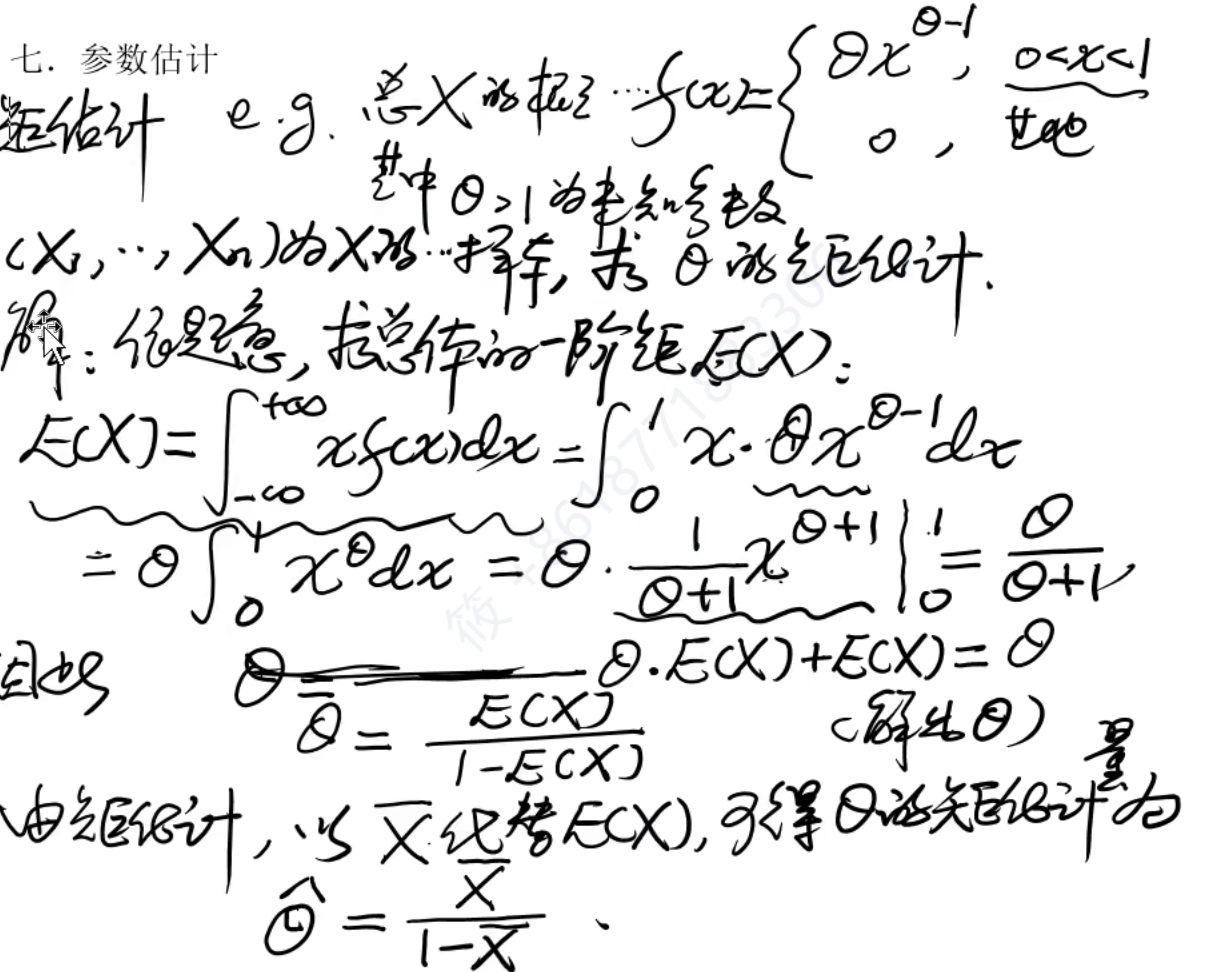 七. 参数估计
矩估计 e.g. 总X的概率…f(x)={θx^{θ-1}, 0<x<1
0, 其他
其中θ>1为未知参数
(X₁,…,Xₙ)为X的…样本,求θ的矩估计.
解:依题意,求总体的一阶矩E(X):
E(X)=∫_{-∞}^{+∞}xf(x)dx=∫_0^1 x·θx^{θ-1}dx
=θ∫_0^1 x^θdx=θ·\frac{1}{θ+1}x^{θ+1}|_0^1=\frac{θ}{θ+1},
因此 θ·E(X)+E(X)=θ
θ=\frac{E(X)}{1-E(X)} (解出θ)
由矩估计,以X̄代替E(X),可得θ的矩估计量为
θ̂=\frac{X̄}{1-X̄}.
筱 +8618771883306